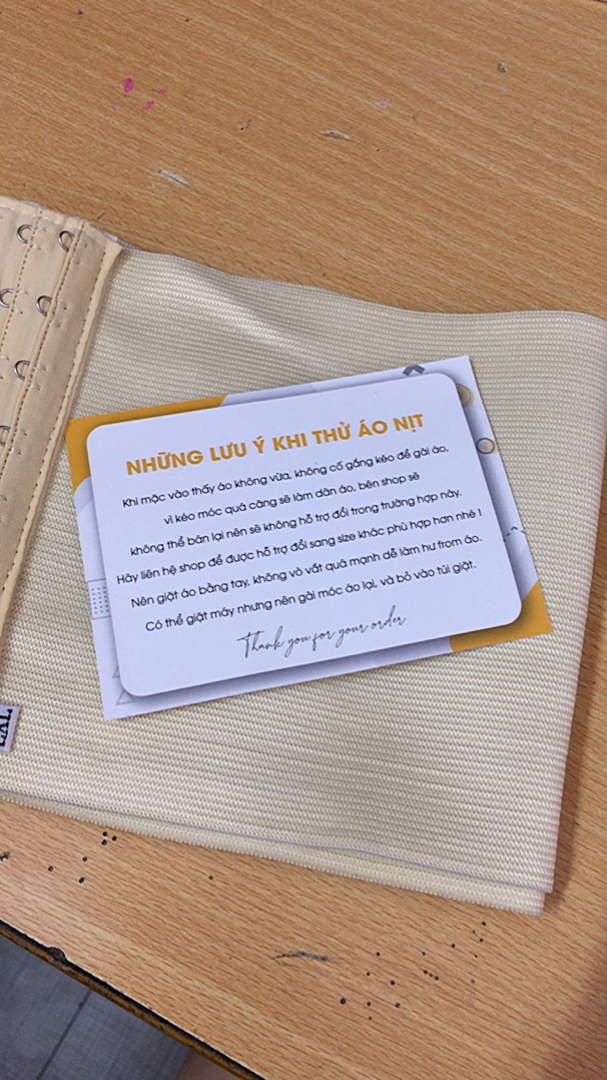 NHỮNG LƯU Ý KHI THỬ ÁO NỊT
Khi mặc vào thấy áo không vừa, không cố gắng kéo để gài áo,
vì kéo móc quá căng sẽ làm dãn áo, bên shop sẽ
không thể bán lại nên sẽ không hỗ trợ đổi trong trường hợp này.
Hãy liên hệ shop để được hỗ trợ đổi sang size khác phù hợp hơn nhé !
Nên giặt áo bằng tay, không vò vắt quá mạnh dễ làm hư from áo.
Có thể giặt máy nhưng nên gài móc áo lại, và bỏ vào túi giặt.
Thank you for your order